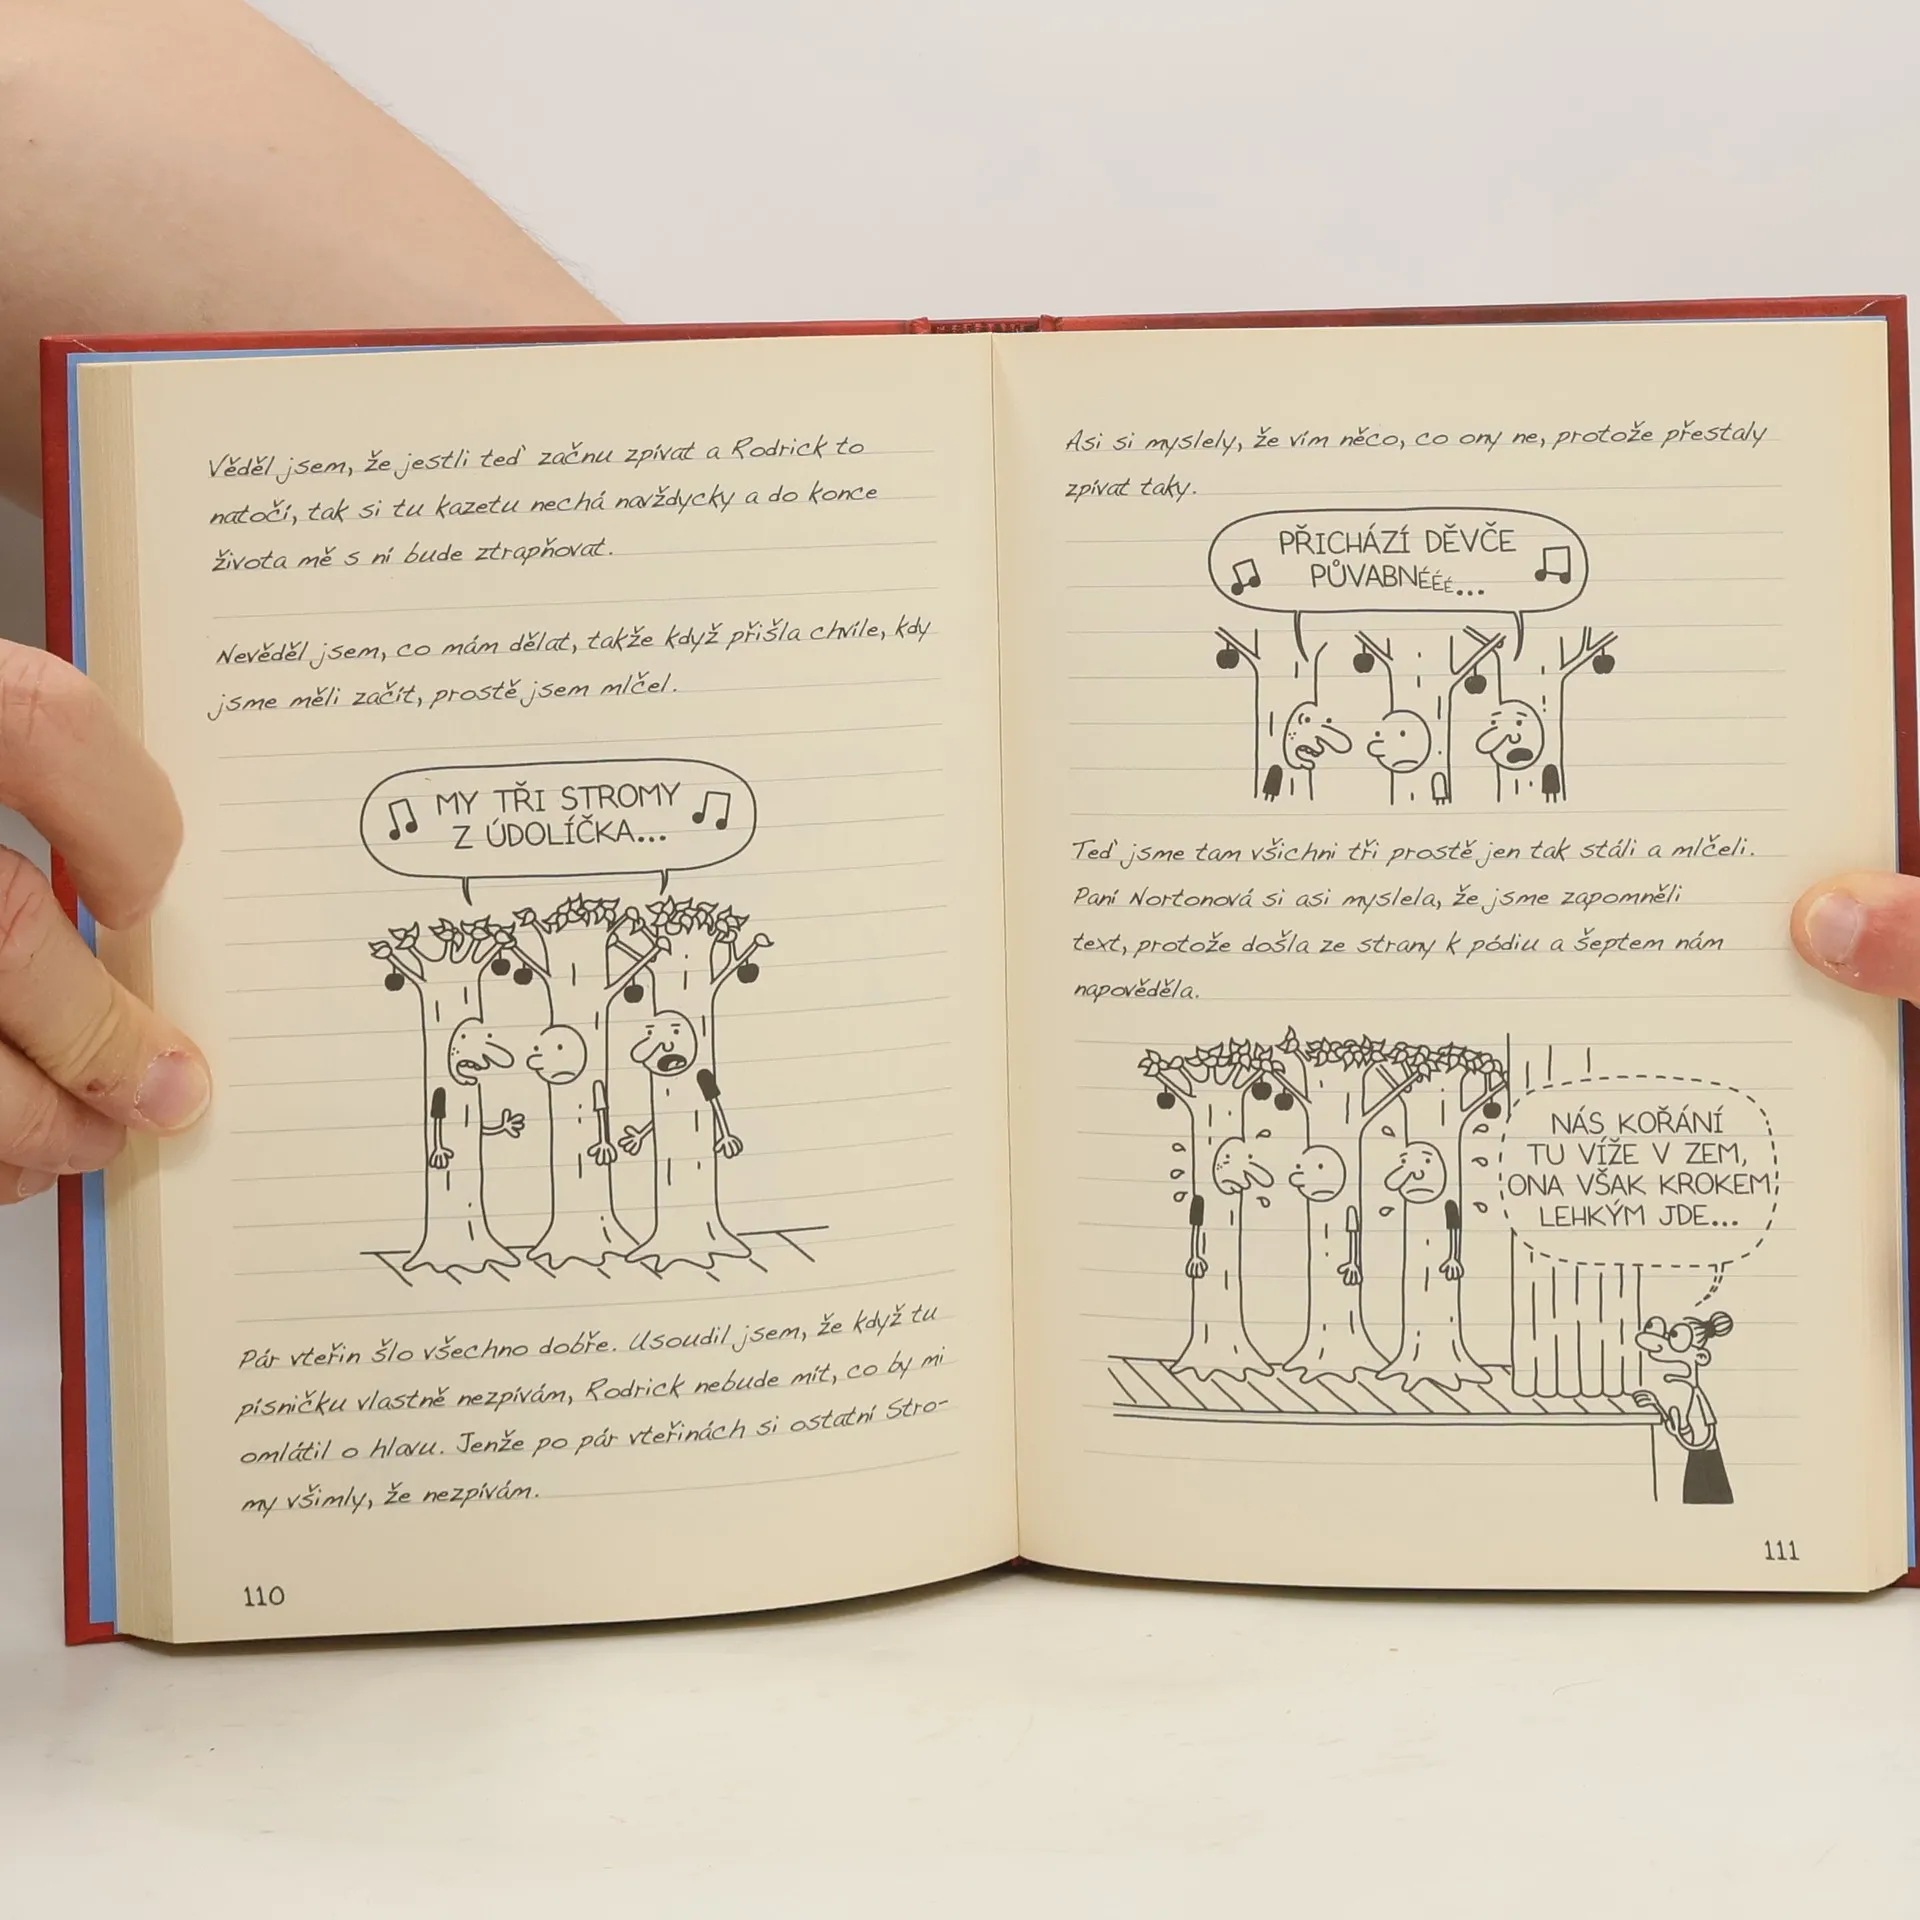 Věděl jsem, že jestli teď začnu zpívat a Rodrick to
natočí, tak si tu kazetu nechá navždycky a do konce
života mě s ní bude ztrapňovat.
Nevěděl jsem, co mám dělat, takže když přišla chvíle, kdy
jsme měli začít, prostě jsem mlčel.
MY TŘI STROMY
Z ÚDOLÍČKA...
Pár vteřin šlo všechno dobře. Usoudil jsem, že když tu
písničku vlastně nezpívám, Rodrick nebude mít, co by mi
omlátil o hlavu. Jenže po pár vteřinách si ostatní Stro-
my všimly, že nezpívám.
110
Asi si myslely, že vím něco, co ony ne, protože přestaly
zpívat taky.
PŘICHÁZÍ DĚVČE
PŮVABNÉÉÉ...
Teď jsme tam všichni tři prostě jen tak stáli a mlčeli.
Paní Nortonová si asi myslela, že jsme zapomněli
text, protože došla ze strany k pódiu a šeptem nám
napověděla.
NÁS KOŘÁNÍ
TU VÍŽE V ZEM,
ONA VŠAK KROKEM
LEHKÝM JDE...
111